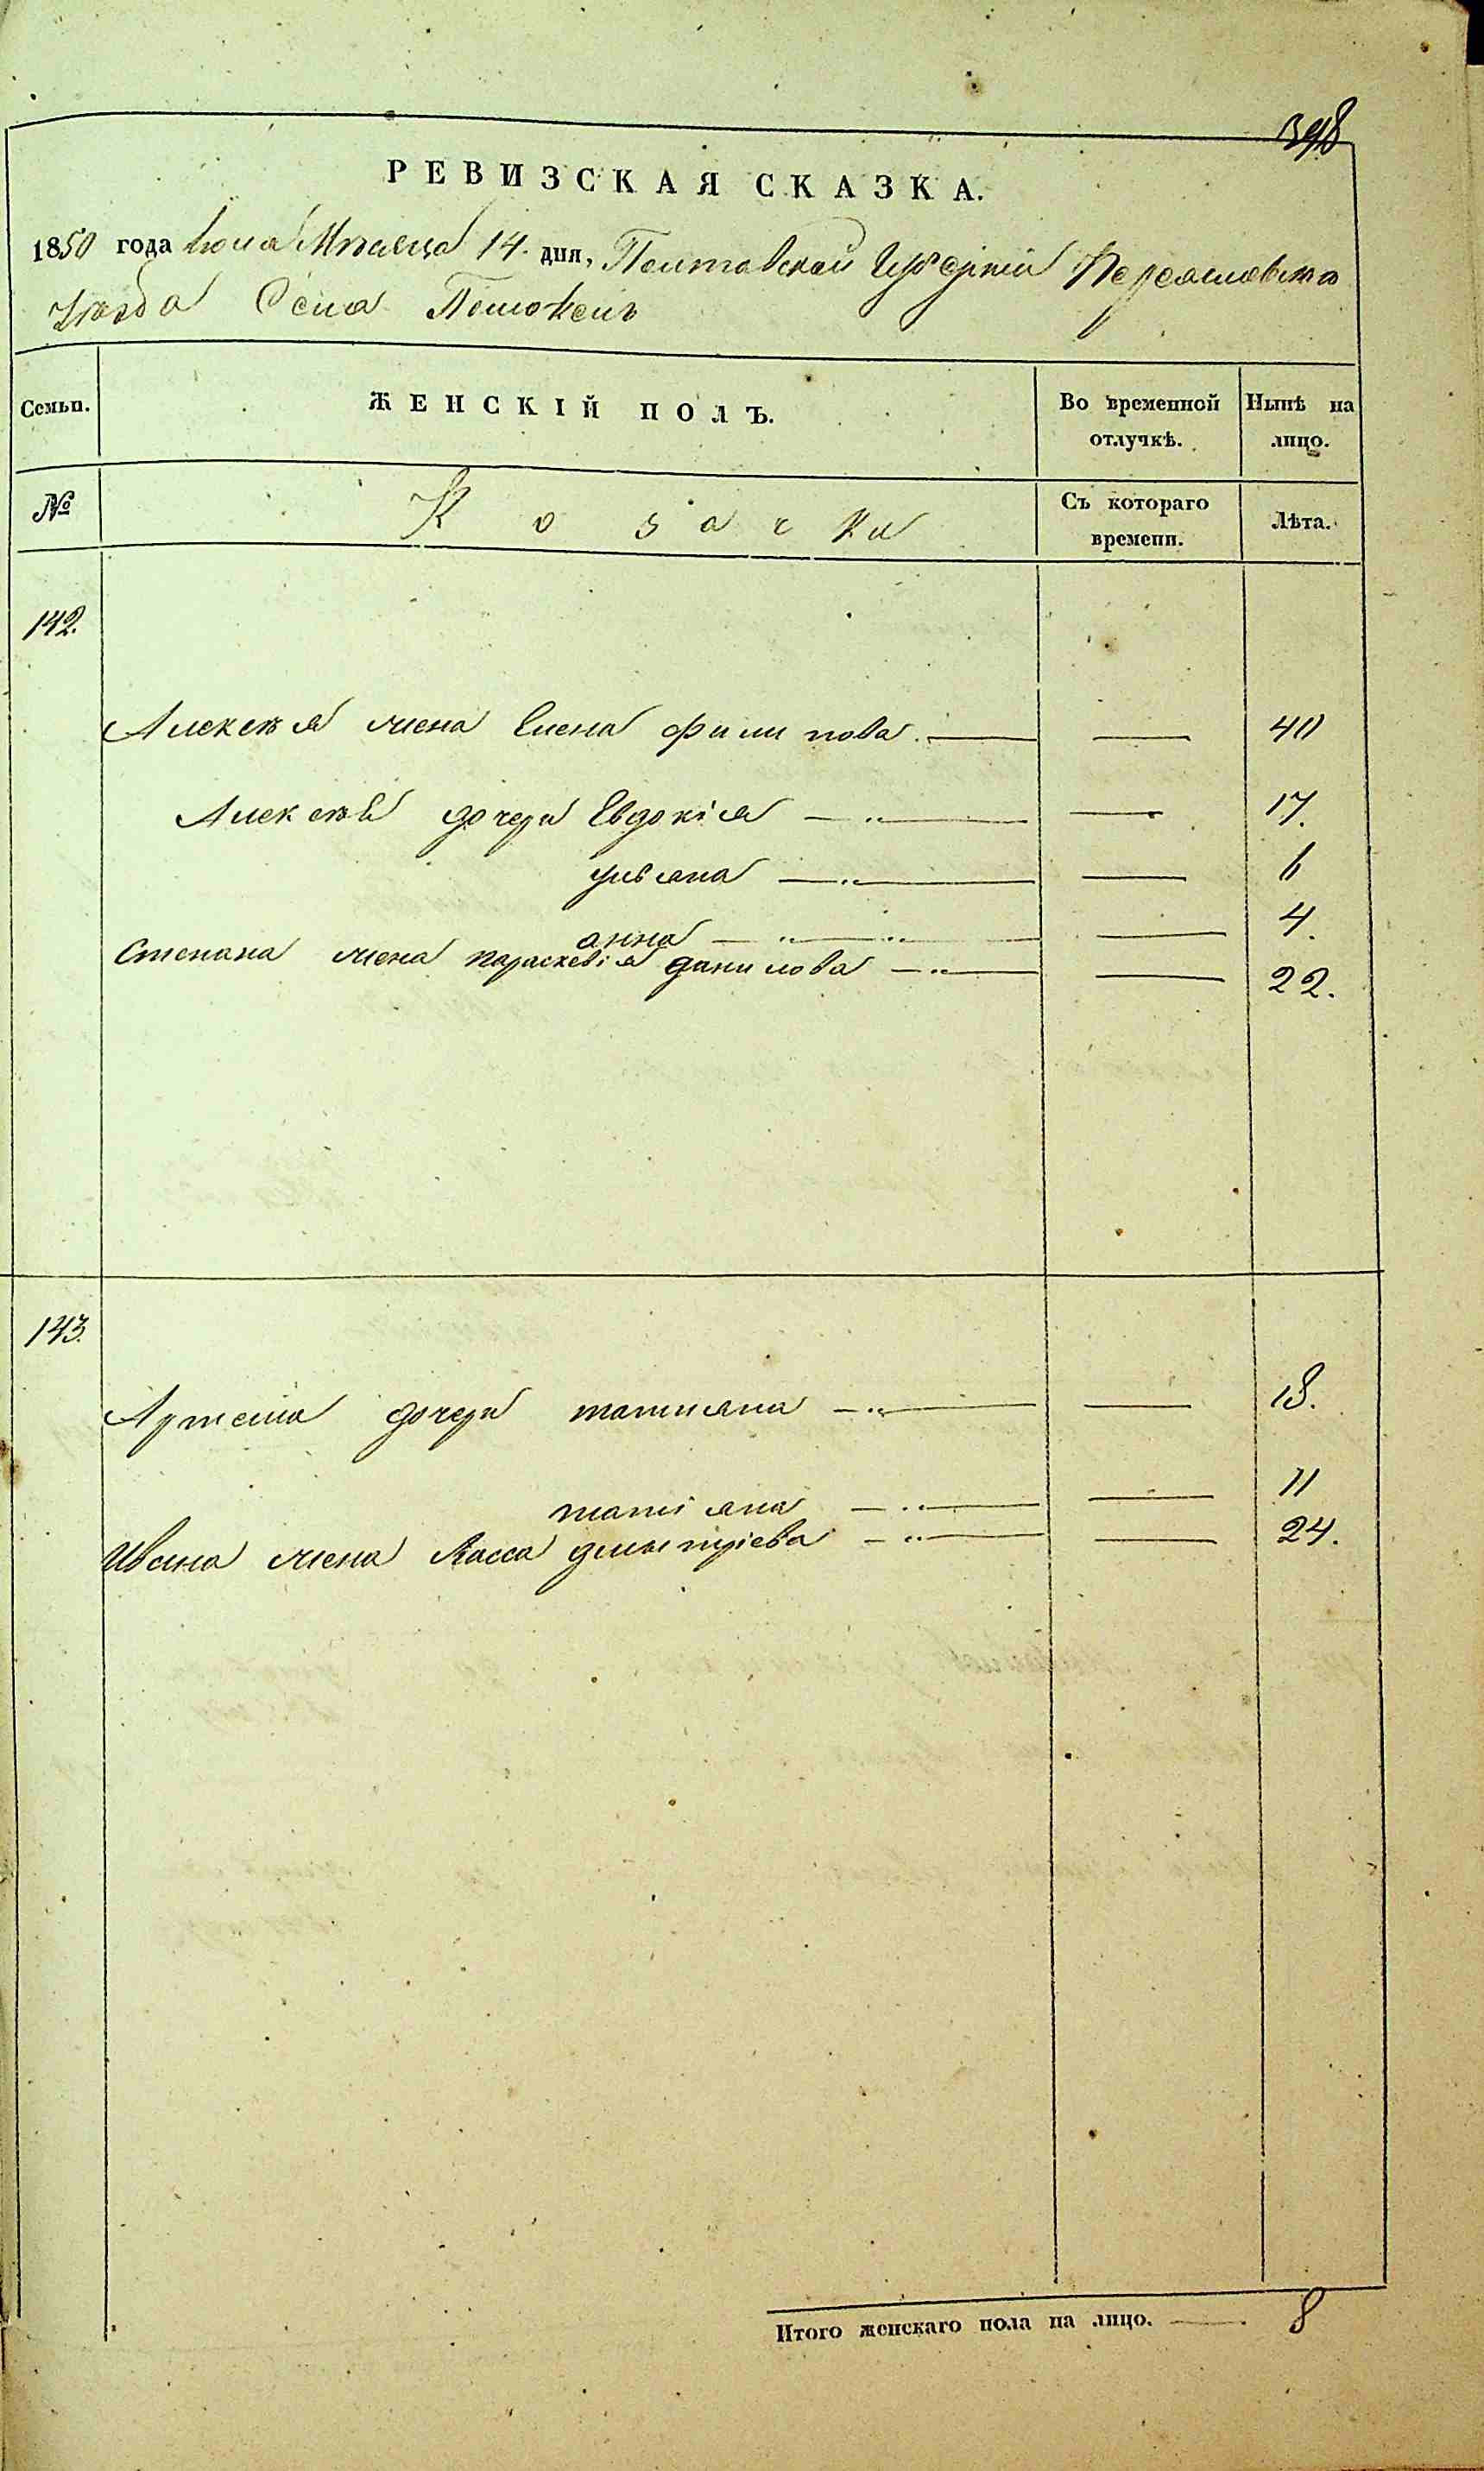 398
РЕВИЗСКАЯ СКАЗКА.
1850 года Июля Мѣсяца 14 дня, Полтавской Губерніи Переяславского
Уѣзда Села Помоклеи
Семьи. ЖЕНСКІЙ ПОЛЪ. Во временной отлучкѣ. Нынѣ на лицо.
№ Козачки Съ котораго времени. Лѣта.
142.
Алексѣя жена Елена Филипова. — — 40
Алексѣя дочери Евдокія — „ — — 17.
улiяна — „ — — 6
анна — „ — „ — — 4.
Степана жена параскевія данилова — „ — — 22.
143.
Артема дочери татияна — „ — — 13.
татіяна — „ — — 11
Ивана жена Васса дмытріева — „ — — 24.
Итого женскаго пола на лицо. — 8